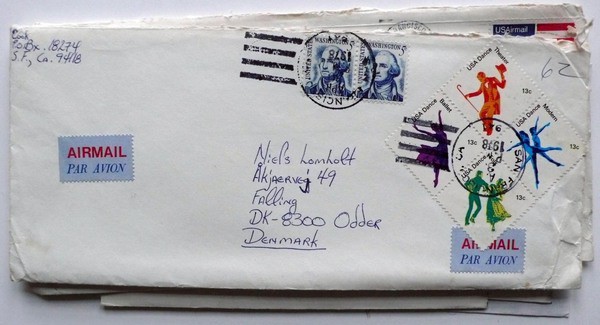 Cook
P.O. Bx. 18274
S.F., Ca. 94118
AIRMAIL
PAR AVION
WASHINGTON 5¢
WASHINGTON 5¢
1978
USAirmail
USA Dance Theater
13c
USA Dance Ballet
13c
USA Dance Modern
13c
USA Dance
13c
SAN
1978
62
Niels Lomholt
Akjaervej 49
Falling
DK-8300 Odder
Denmark
AIRMAIL
PAR AVION